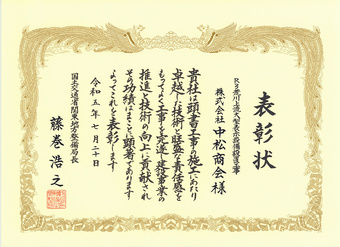 表彰状
株式会社 中松商会 様
貴社は頭書工事の施工にあたり
卓越した技術と旺盛な責任感を
もってよく工事を完遂し建設事業の
推進と技術の向上に貢献され
その功績はまことに顕著であります
よってこれを表彰します
令和五年七月二十日
国土交通省関東地方整備局長
藤巻浩之